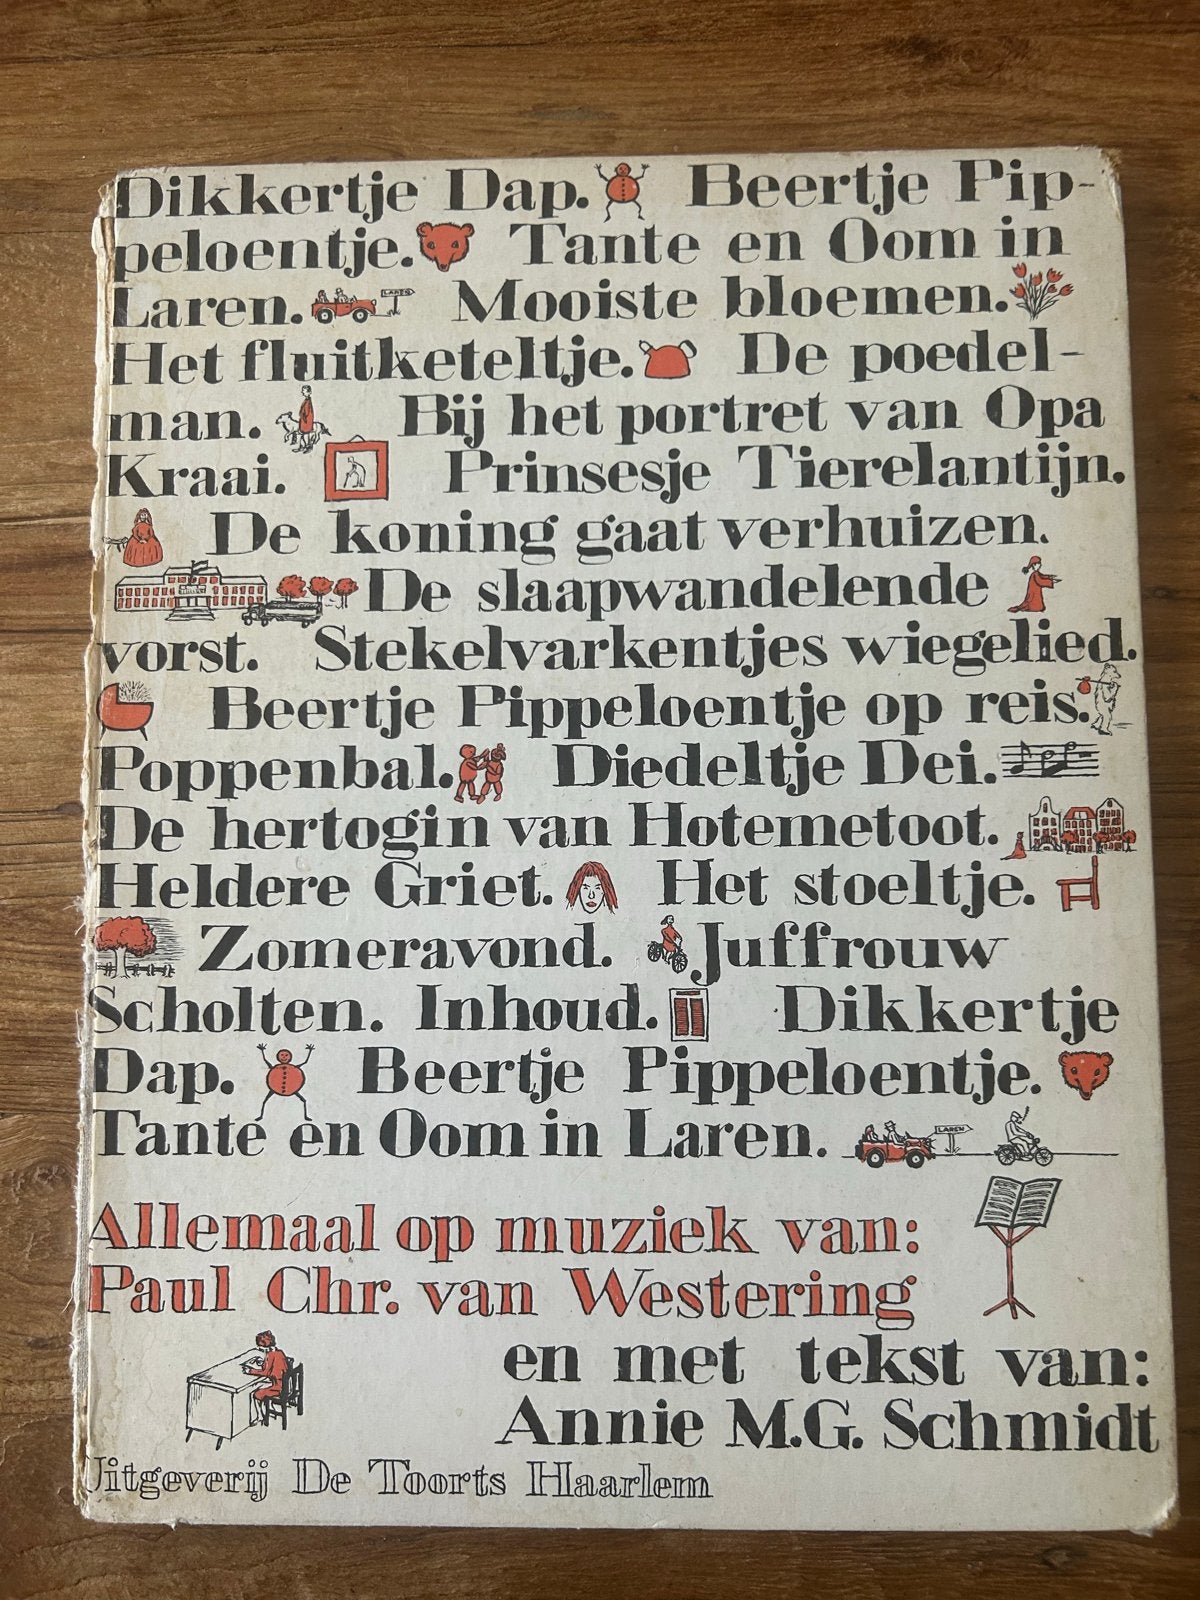 Dikkertje Dap. Beertje Pip-
peloentje. Tante en Oom in
Laren. LAREN Mooiste bloemen.
Het fluitketeltje. De poedel-
man. Bij het portret van Opa
Kraai. Prinsesje Tierelantijn.
De koning gaat verhuizen.
De slaapwandelende
vorst. Stekelvarkentjes wiegelied.
Beertje Pippeloentje op reis.
Poppenbal. Diedeltje Dei.
De hertogin van Hotemetoot.
Heldere Griet. Het stoeltje.
Zomeravond. Juffrouw
Scholten. Inhoud. Dikkertje
Dap. Beertje Pippeloentje.
Tante en Oom in Laren. LAREN
Allemaal op muziek van:
Paul Chr. van Westering
en met tekst van:
Annie M.G. Schmidt
Uitgeverij De Toorts Haarlem